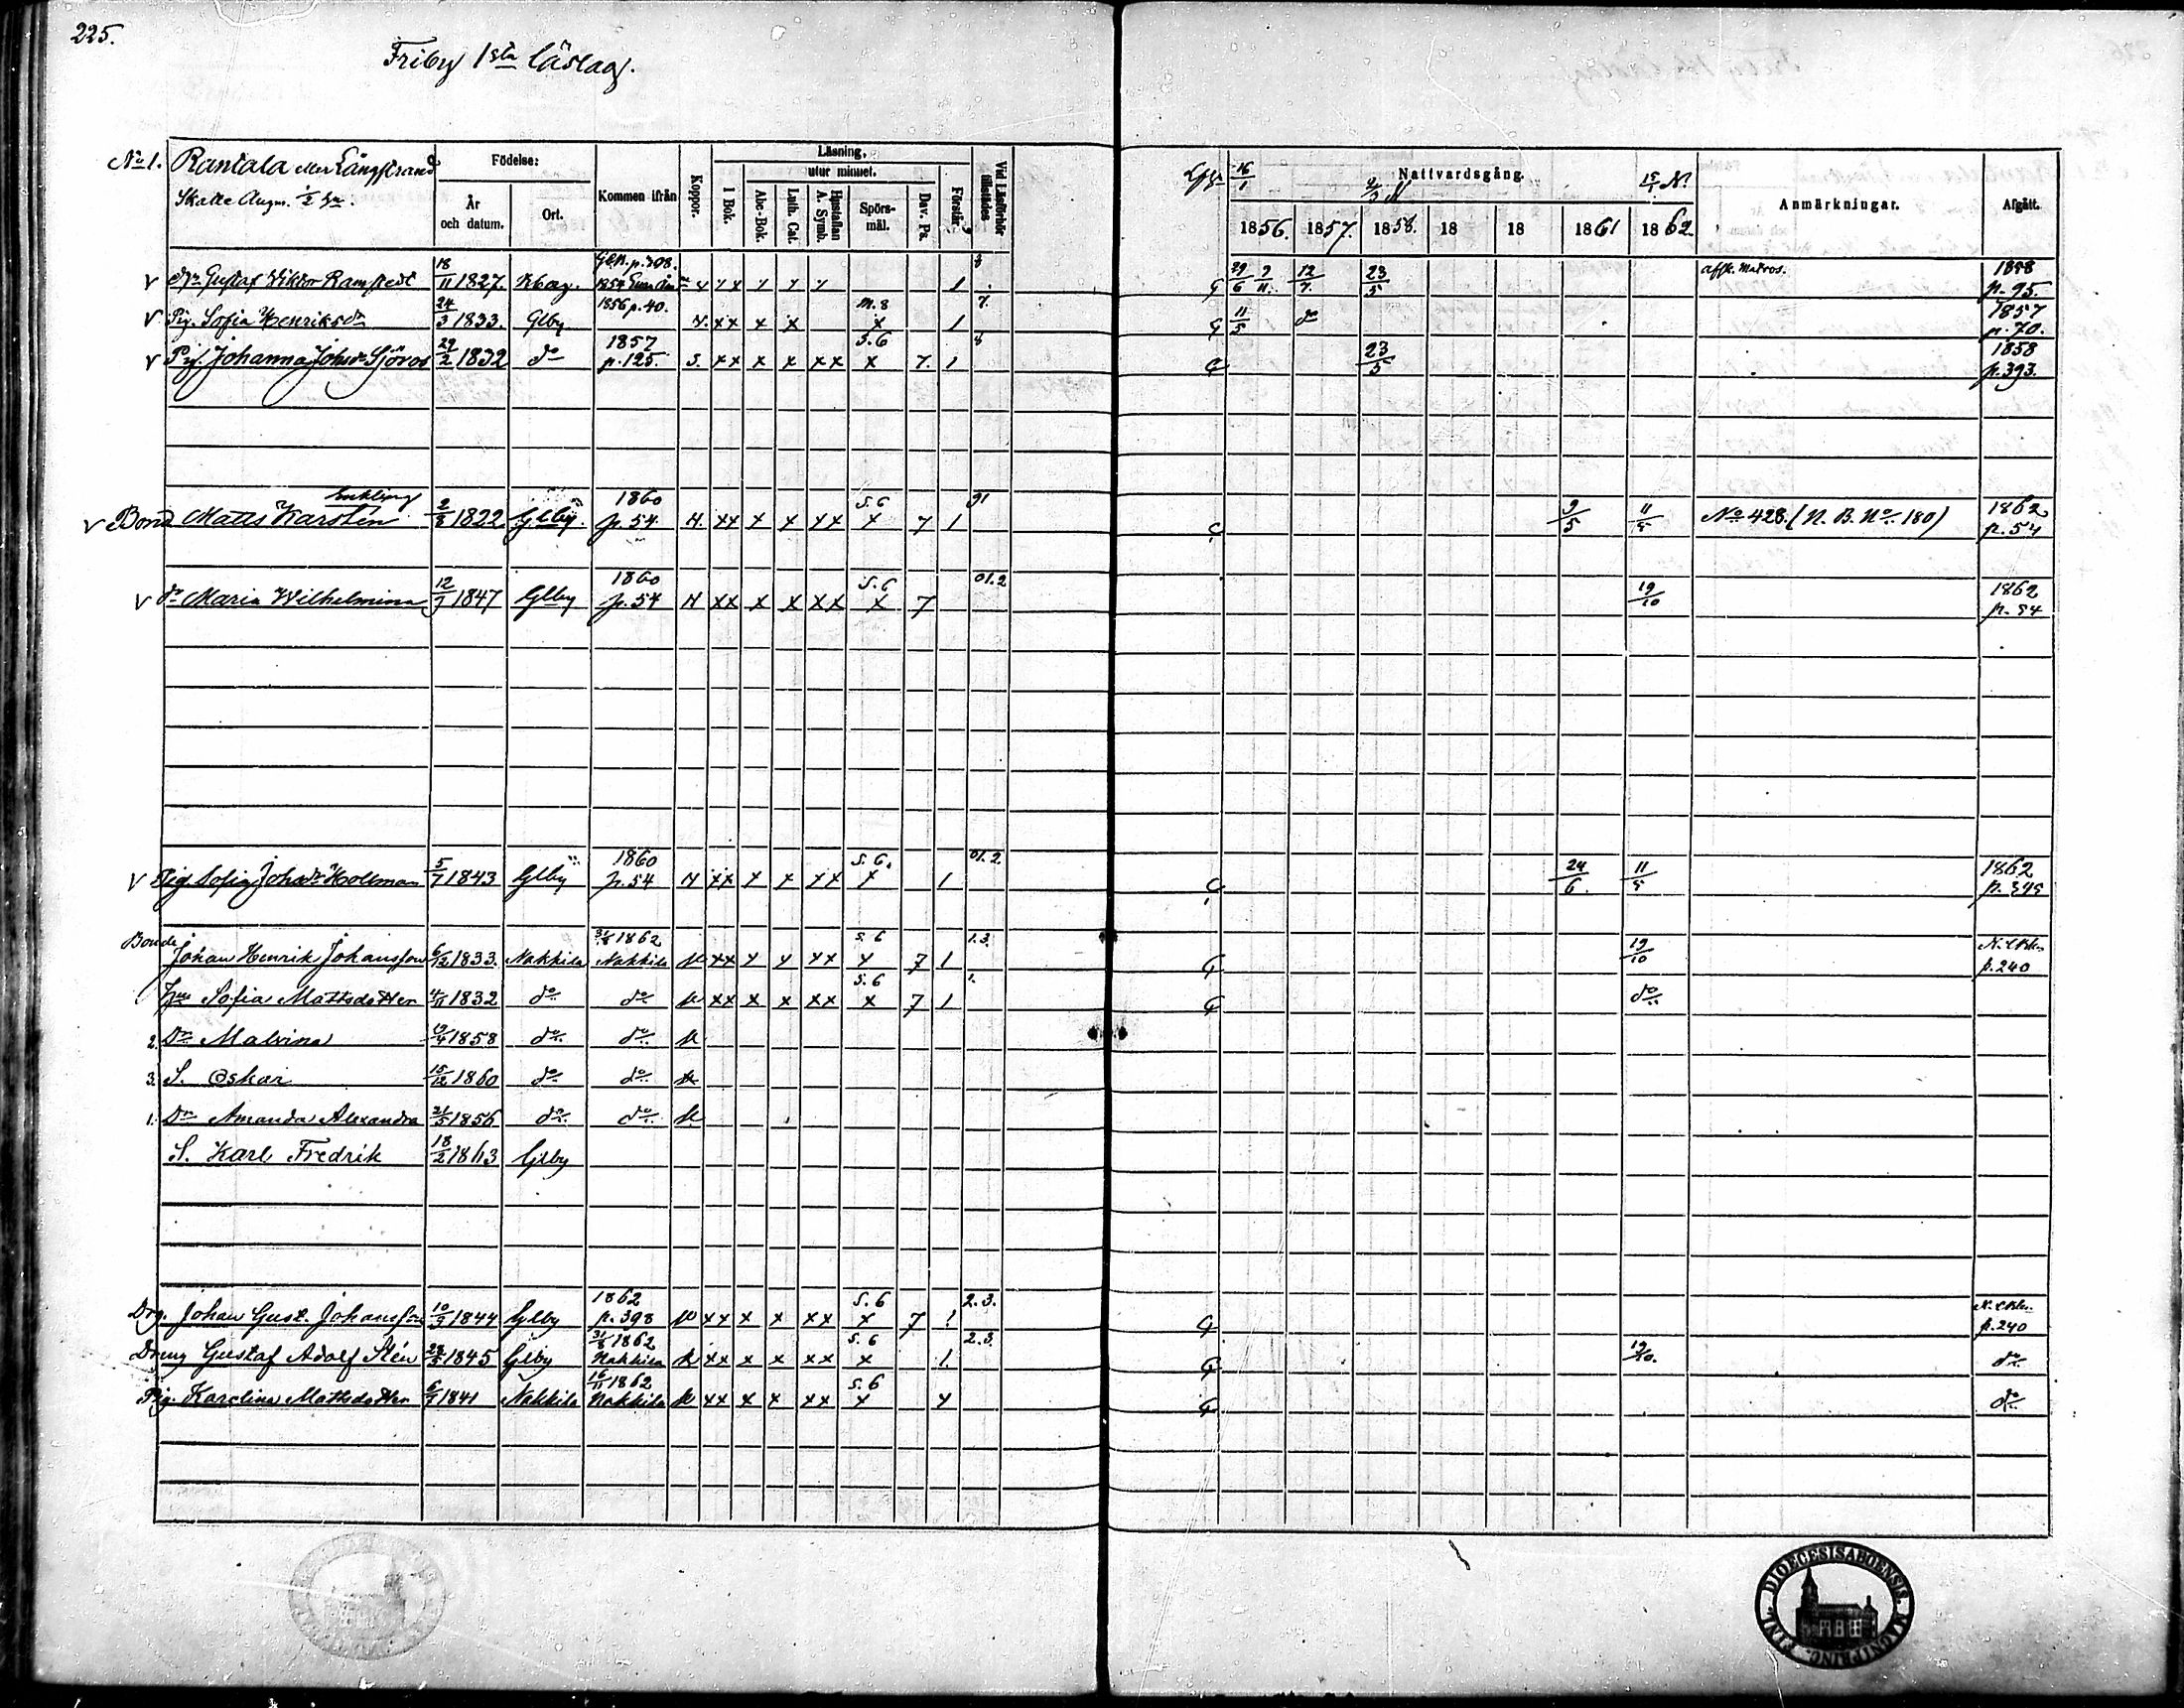 225.
Friby 1sta läslag.
No 1. Rantala eller Långstrand
Skatte Augm. 1/2 hn.
Födelse:
År och datum.
Ort.
Kommen ifrån
Koppor.
Läsning,
utur minnet.
I Bok.
Abc-Bok.
Luth. Cat.
Hustaflan A. Symb.
Spörs-mål.
Dav. Ps.
Förstår.
Vid Läsförhör tillstädes
16/1
Nattvardsgång.
2/3 N
15/1 N.
1856. 1857. 1858. 18 18 1861 1862
Anmärkningar.
Afgått.
V Gustaf Viktor Ramstedt 18/11 1827 p. 398. 1854 x x x x x 1 8 29/6 9/11 12/7 23/5 afsk. Matros. 1858 p. 95.
V Pig. Sofia Henriksdr 24/3 1833. Glby 1856 p. 40. v. xx x x m. 8 x 1 7. 11/5 do 1857 p. 70.
V Pig. Johanna Johsdr Sjöros 29/2 1832 do 1857 p. 125. S. xx x x xx S. 6 x 7. 1 8 23/5 1858 p. 393.
V Bond Matts Karstén Enkling 2/8 1822 Glby. 1860 p. 54. N. xx x x xx S. 6 x 7 1 91 9/5 11/5 No 428. (N. B. No 180) 1862 p. 54
V dr Maria Wilhelmina 12/7 1847 Glby 1860 p. 54 N xx x x xx S. 6 x 7 01.2 19/10 1862 p. 54
V Pig. Sofia Johsdr Hollman 5/7 1843 Glby 1860 p. 54 N xx x x xx S. 6. x 1 01.2 24/6. 11/5 1862 p. 345
Bonde Johan Henrik Johansson 6/12 1833. Nakkila 31/8 1862 Nakkila xx x x xx S. 6 x 7 1 1.3. 19/10 p. 240
Hu Sofia Mattsdotter 4/11 1832 do do xx x x xx S. 6 x 7 1 1. do
2. Dr Malvina 19/4 1858 do do
3. S. Oskar 15/12 1860 do do
1. Dr Amanda Alexandra 21/5 1856 do do
S. Karl Fredrik 18/2 1863 Glby
Drg. Johan Gust. Johansson 10/2 1844 Glby 1862 p. 398 xx x x xx S. 6 x 7 1 2.3. p. 240
Dreng Gustaf Adolf Stén 28/5 1845 Glby 31/8 1862 Nakkila xx x x xx S. 6 x 1 2.3. 19/10. do
Pig. Karolina Mattsdotter 6/7 1841 Nakkila 16/11 1862 Nakkila xx x x xx S. 6 x x do
DIOECESIS ABOENSIS. MAGNI PRINC. FINL.